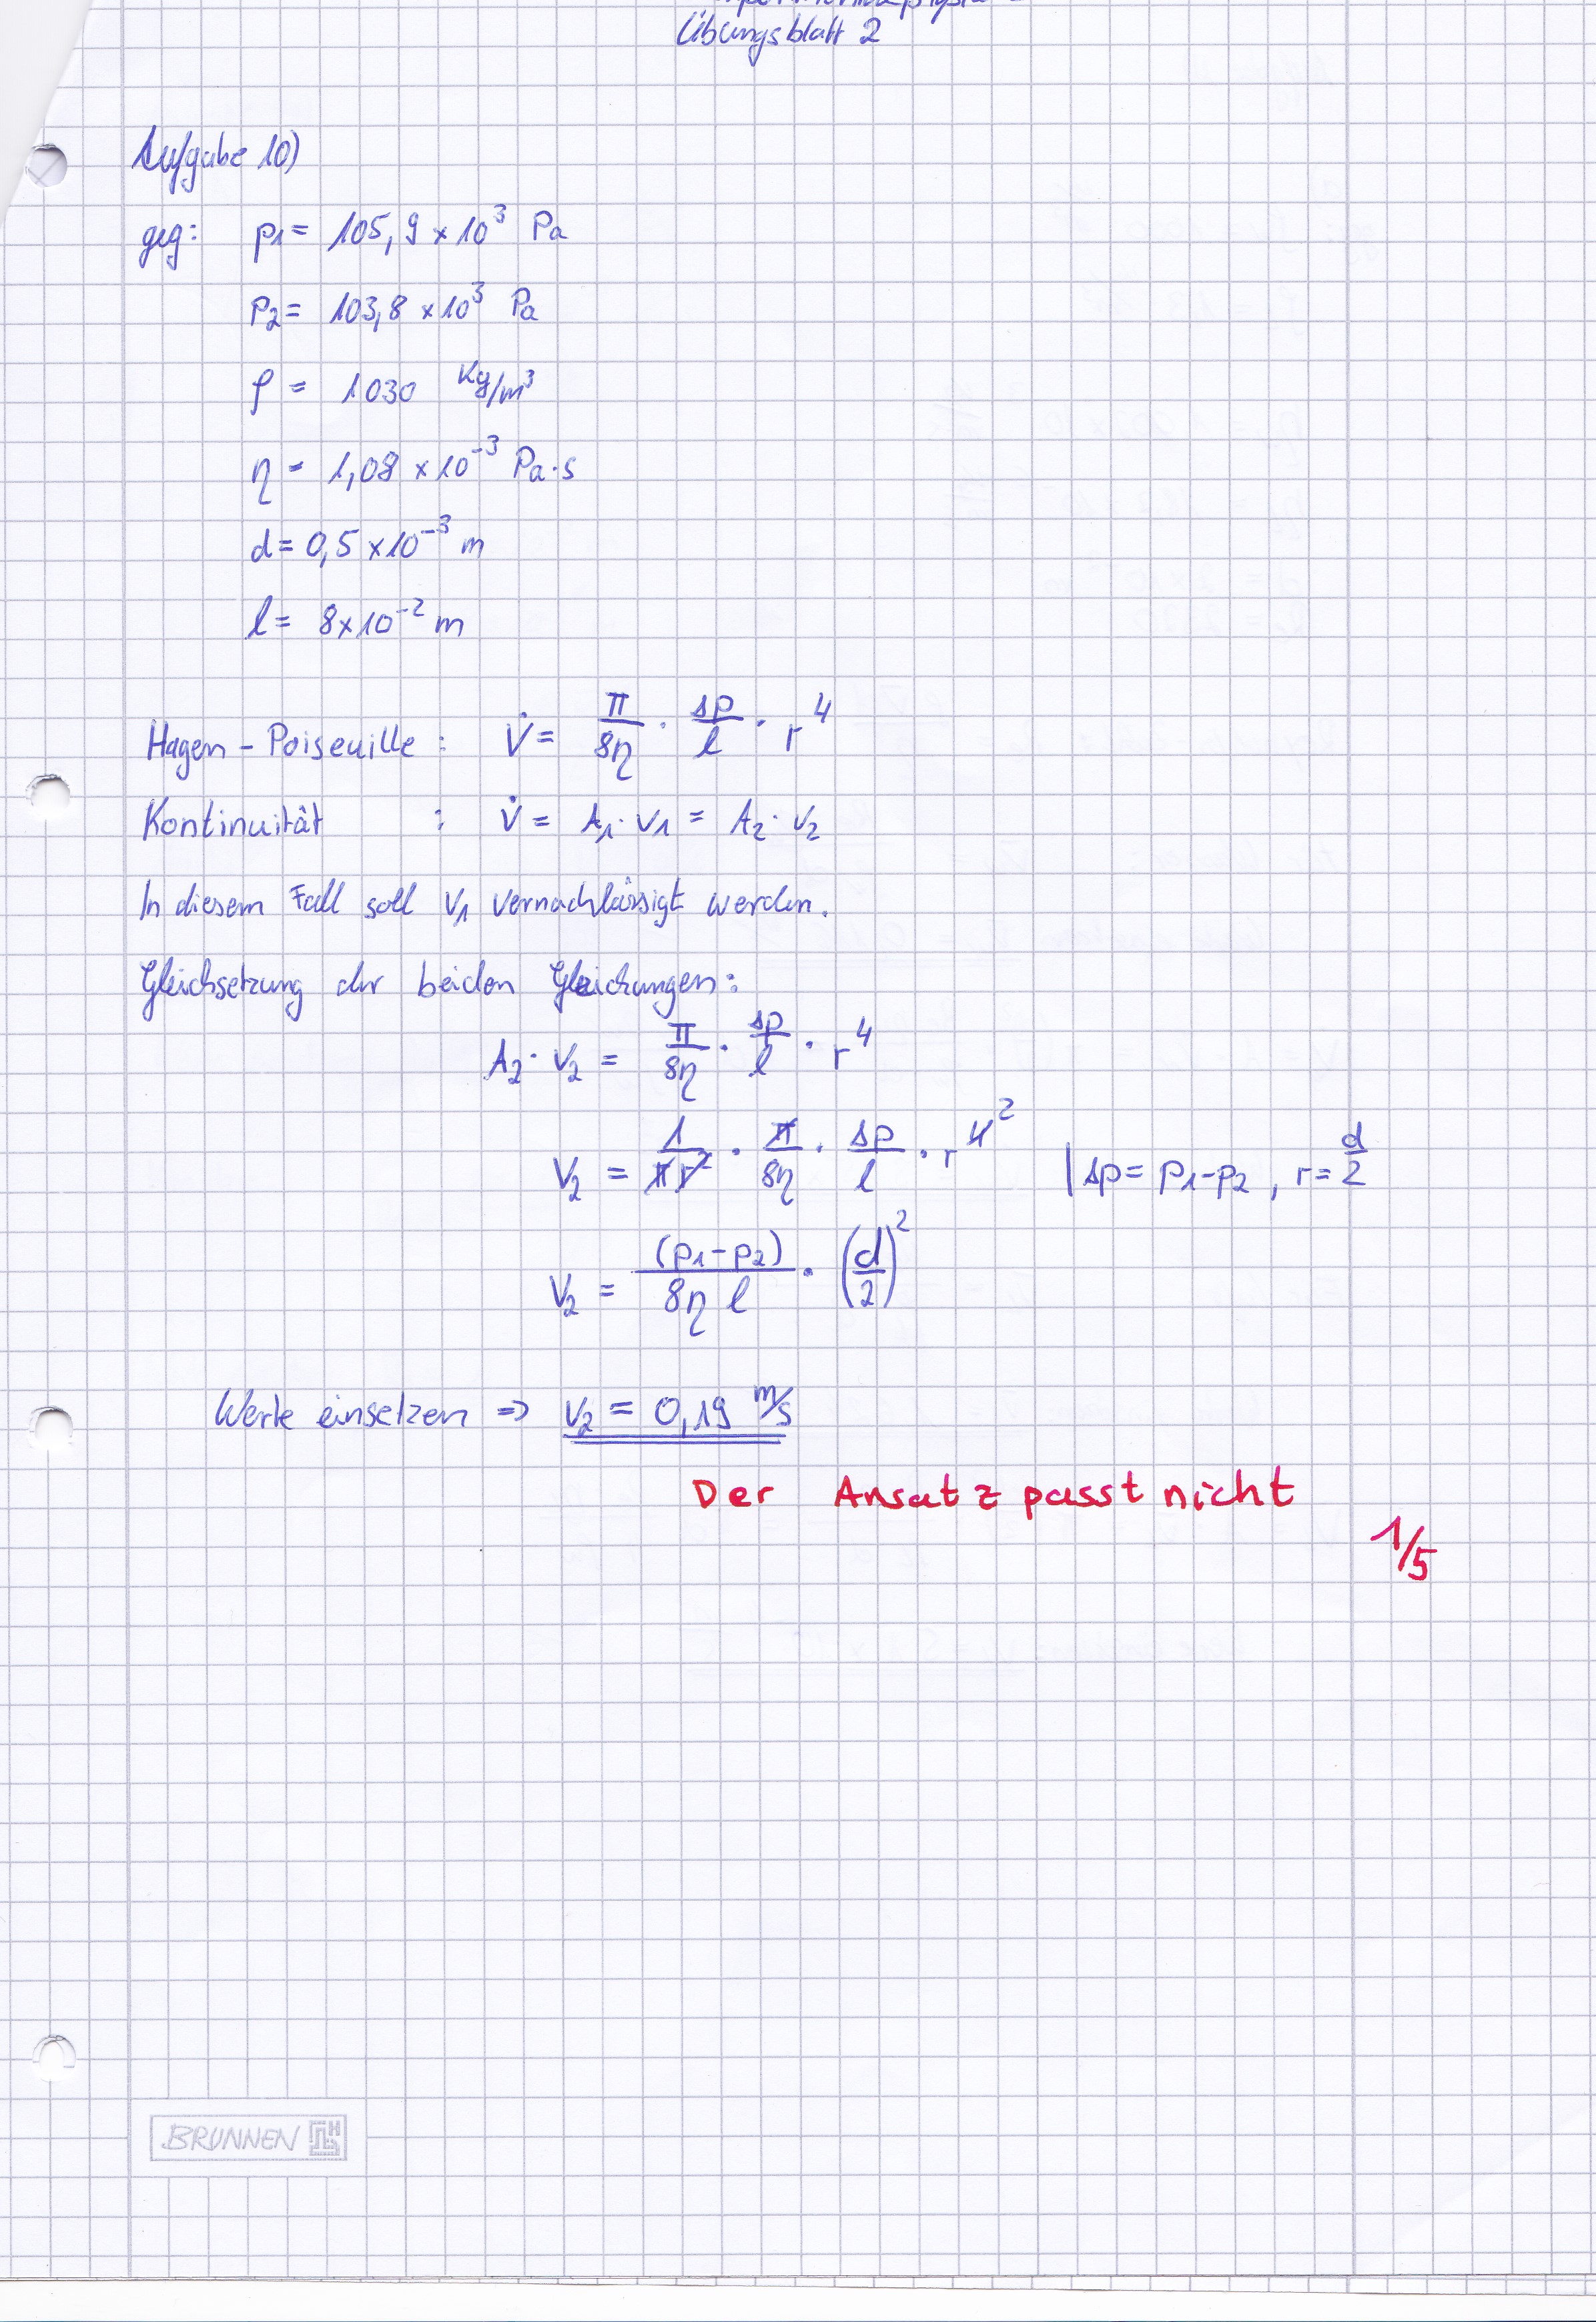 Übungsblatt 2
Aufgabe 10)
geg: p₁ = 105,9 × 10³ Pa
p₂ = 103,8 × 10³ Pa
ρ = 1030 Kg/m³
η = 1,08 × 10⁻³ Pa·s
d = 0,5 × 10⁻³ m
l = 8 × 10⁻² m
Hagen - Poiseuille : V̇ = π/8η · Δp/l · r⁴
Kontinuität : V̇ = A₁ · v₁ = A₂ · v₂
In diesem Fall soll v₁ vernachlässigt werden.
Gleichsetzung der beiden Gleichungen:
A₂ · v₂ = π/8η · Δp/l · r⁴
v₂ = 1/πr² · π/8η · Δp/l · r⁴ ² | Δp = p₁-p₂ , r = d/2
v₂ = (p₁-p₂)/8η l · (d/2)²
Werte einsetzen => v₂ = 0,19 m/s
Der Ansatz passt nicht
1/5
BRUNNEN